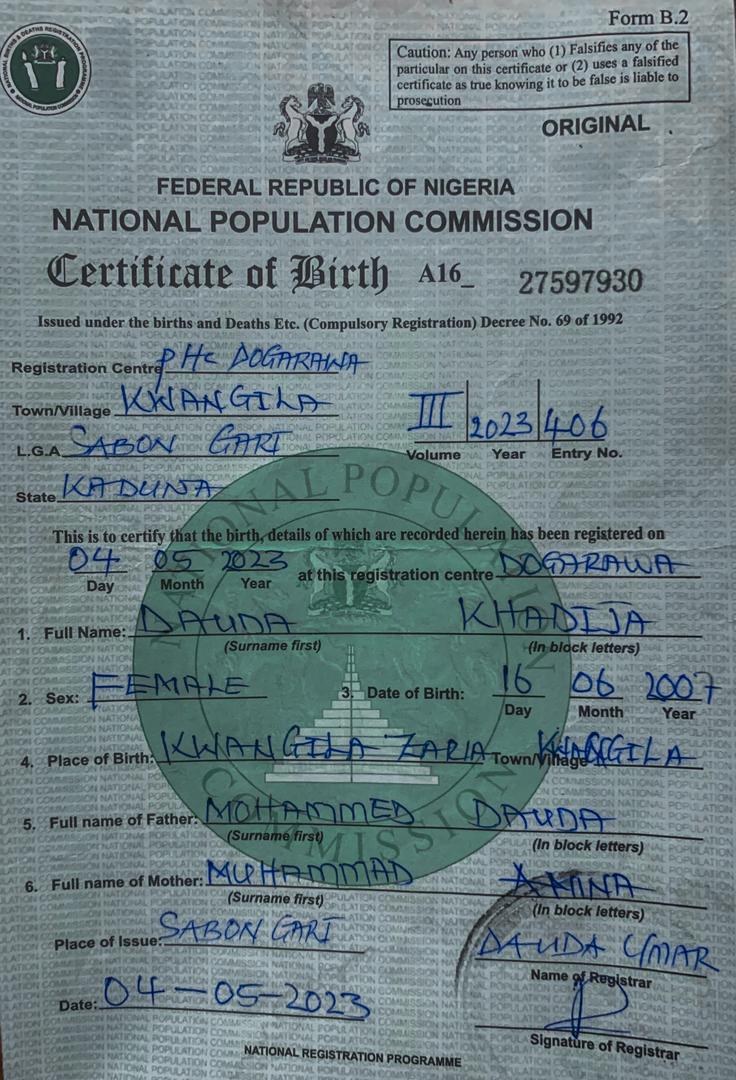 Form B.2
NATIONAL BIRTHS & DEATHS REGISTRATION PROGRAMME
NATIONAL POPULATION COMMISSION
Caution: Any person who (1) Falsifies any of the
particular on this certificate or (2) uses a falsified
certificate as true knowing it to be false is liable to
prosecution
ORIGINAL
FEDERAL REPUBLIC OF NIGERIA
NATIONAL POPULATION COMMISSION
Certificate of Birth A16_ 27597930
Issued under the births and Deaths Etc. (Compulsory Registration) Decree No. 69 of 1992
Registration Centre PHC DOGARAWA
Town/Village KWANGILA
III 2023 406
Volume Year Entry No.
L.G.A. SABON GARI
State KADUNA
This is to certify that the birth, details of which are recorded herein has been registered on
04 05 2023 at this registration centre DOGARAWA
Day Month Year
1. Full Name: DAUDA KHADIJA
(Surname first) (In block letters)
2. Sex: FEMALE 3. Date of Birth: 16 06 2007
Day Month Year
4. Place of Birth: KWANGILA ZARIA Town/Village KWANGILA
5. Full name of Father: MOHAMMED DAUDA
(Surname first) (In block letters)
6. Full name of Mother: MUHAMMAD AMINA
(Surname first) (In block letters)
Place of Issue: SABON GARI
DAUDA UMAR
Name of Registrar
Date: 04-05-2023
Signature of Registrar
NATIONAL REGISTRATION PROGRAMME
NATIONAL POPULATION COMMISSION